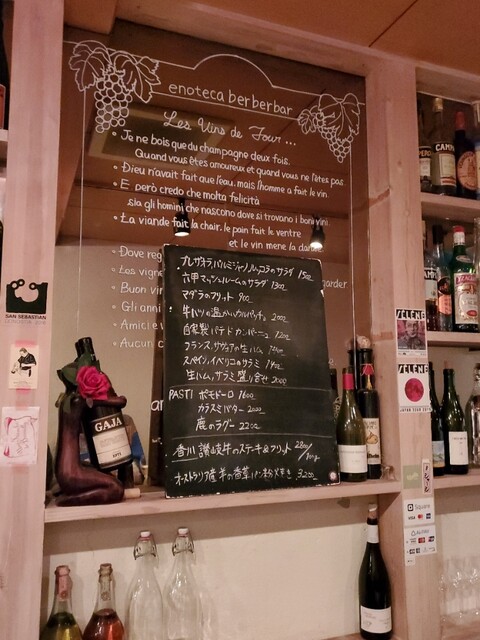 enoteca berberbar
Les Vins de Four ...
• Je ne bois que du champagne deux fois.
Quand vous êtes amoureux et quand vous ne l'êtes pas.
• Dieu n'avait fait que l'eau, mais l'homme a fait le vin.
• E però credo che molta felicità
sia agli homini che nascono dove si trovano i boni vini.
• La viande fait la chair, le pain fait le ventre
et le vin mène la danse
• Dove reg
• Les vigne
garder
• Buon vin
• Gli anni
• Amici e v
• Aucun c
ブレザオラ、パルミジャーノ、ルッコラのサラダ
六甲マッシュルームのサラダ 1300
マダラのフリット 900
牛ハツの温かいカルパッチョ 2000
自家製パテドカンパーニュ 1200
フランス、サヴォアの生ハム
スペイン、イベリコのサラミ
生ハム、サラミ盛り合せ 2000
PASTI ポモドーロ 1600
カラスミバター 2000
鹿のラグー 2200
香川 讃岐牛のステーキ&フリット 2800/100g
オーストラリア産 羊の香草パン粉焼き 3200
SAN SEBASTIAN
GAJA
SELENE
SELENE
CAMPARI
Square
VISA